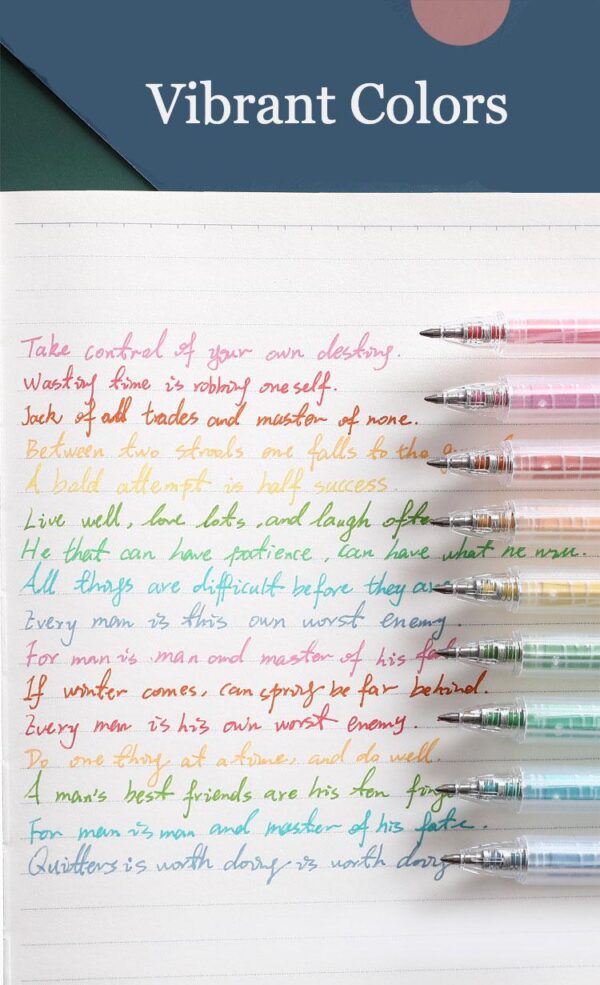 Vibrant Colors
Take control of your own destiny.
Wasting time is robbing oneself.
Jack of all trades and master of none.
Between two strools one falls to the
A bald attempt is half success.
Live well, love lots, and laugh ofte
He that can have patience, can have what he
All things are difficult before they are
Every man is this own worst enemy.
For man is man and master of his fate
If winter comes, can spring be far behind.
Every man is his own worst enemy.
Do one thing at a time, and do well.
A man's best friends are his ten fing
For man is man and master of his fate.
Quitters is worth doing is worth doing